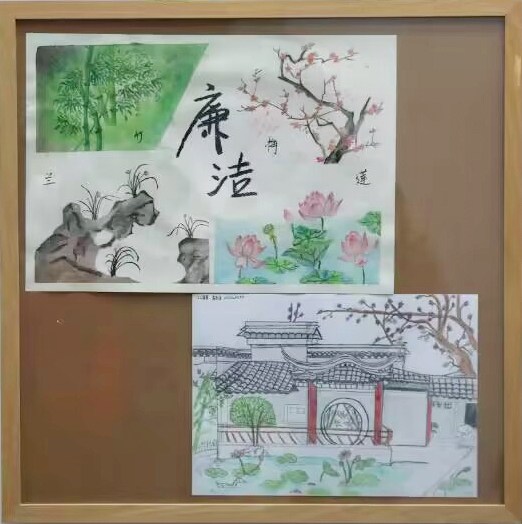 廉
洁
竹
梅
兰
莲